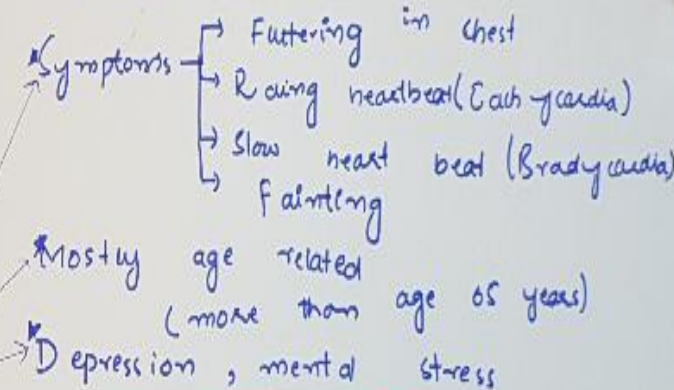 Symptoms → Futtering in chest
→ Racing heartbeat (Tachycardia)
→ Slow heart beat (Bradycardia)
→ Fainting
Mostly age related
(more than age 65 years)
Depression, mental stress